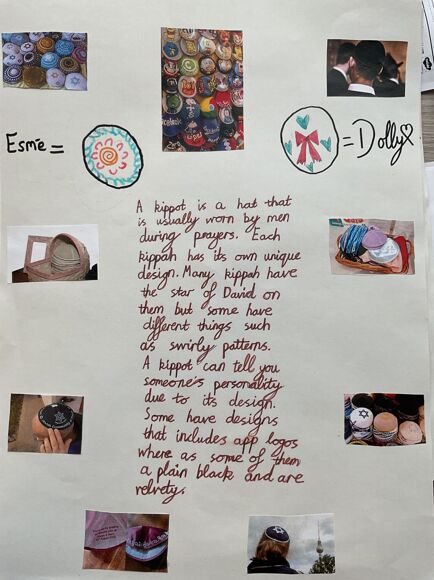 Esme =
= Dolly
A kippot is a hat that
is usually worn by men
during prayers. Each
kippah has its own unique
design. Many kippah have
the star of David on
them but some have
different things such
as swirly patterns.
A kippot can tell you
someone's personality
due to its design.
Some have designs
that includes app logos
where as some of them
a plain black and are
velvety.